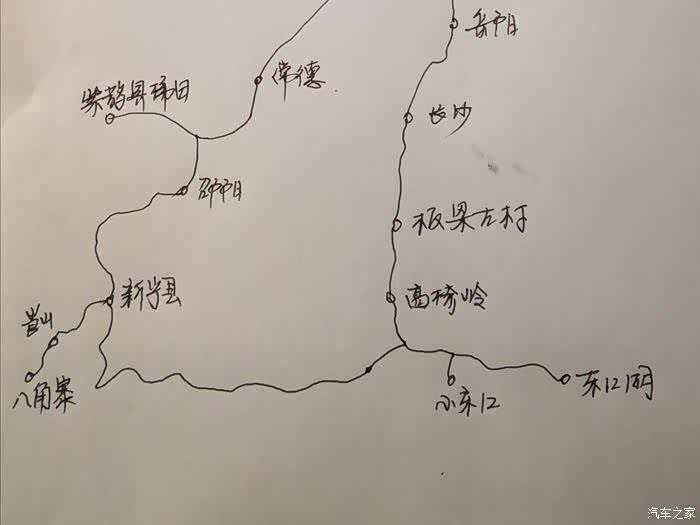 岳阳
常德
紫鹊界梯田
长沙
邵阳
板梁古村
新宁县
高椅岭
崀山
八角寨
小东江
东江湖
汽车之家